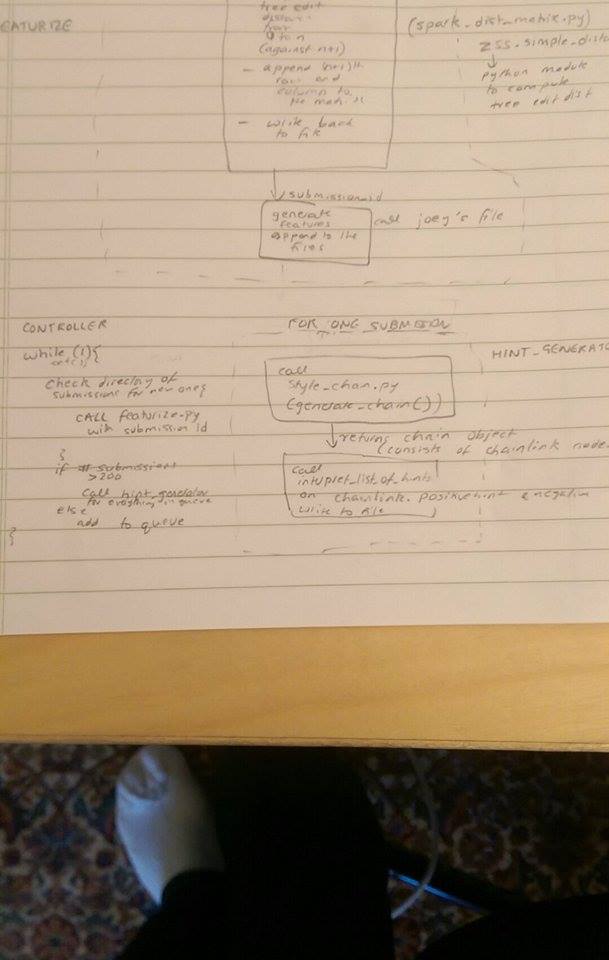 EATURIZE
tree edit
distanc
from
0 to n
(against n+1)
- append (n+1)th
row and
column to
the matrix
- write back
to file
(spark_dist_matrix.py)
zss.simple_dista
python module
to compute
tree edit dist
submission_id
generate
features
append to the
files
call joey's file
CONTROLLER
while (1){
Check directory of
submissions for new ones
CALL featurize.py
with submission id
}
if # submissions
>200
Call hint generator
for everything in queue
else
add to queue
}
FOR ONE SUBMISSION
HINT_GENERATO
call
style_chain.py
(generate_chain())
returns chain object
(consists of chainlink node
call
interpret_list_of_hints
on chainlink.positivehint & negative
write to file